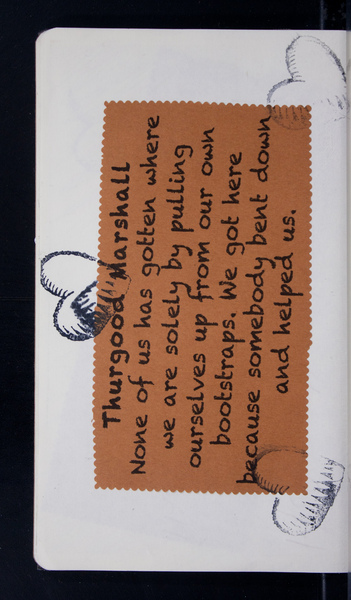 Thurgood Marshall
None of us has gotten where
we are solely by pulling
ourselves up from our own
bootstraps. We got here
because somebody bent down
and helped us.